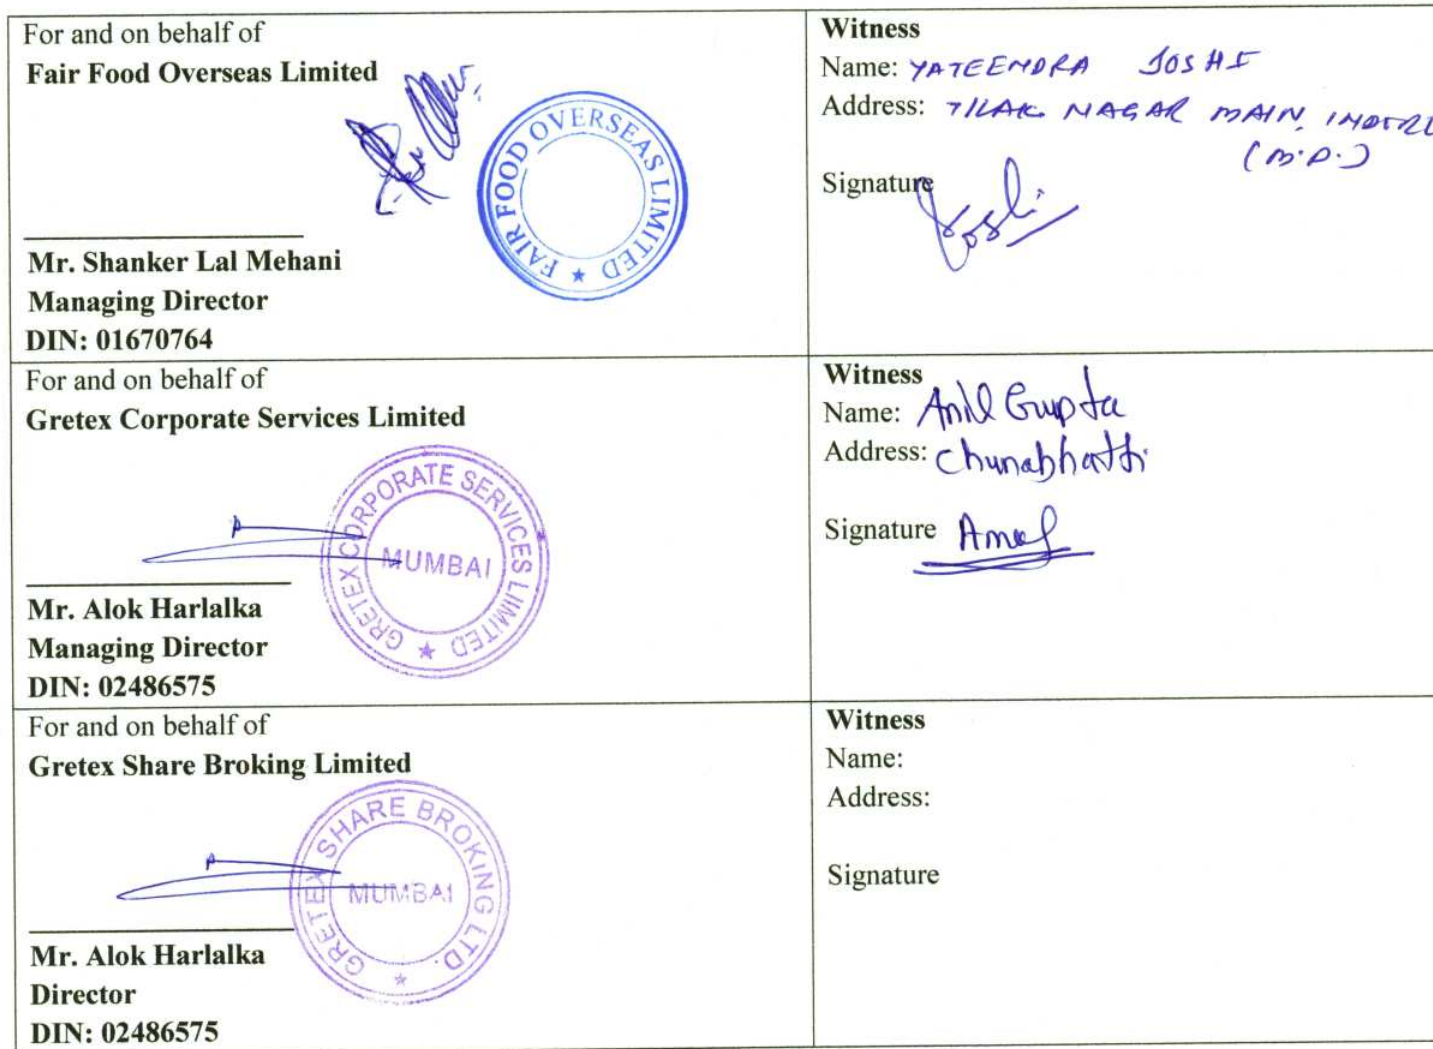 For and on behalf of
Fair Food Overseas Limited
FAIR FOOD OVERSEAS LIMITED ★
Mr. Shanker Lal Mehani
Managing Director
DIN: 01670764
Witness
Name: YATEENDRA JOSHI
Address: TILAK NAGAR MAIN, INDORE
(M.P.)
Signature
Joshi
For and on behalf of
Gretex Corporate Services Limited
GRETEX CORPORATE SERVICES LIIMITED ★
MUMBAI
Mr. Alok Harlalka
Managing Director
DIN: 02486575
Witness
Name: Anil Gupta
Address: Chunabhatti
Signature
For and on behalf of
Gretex Share Broking Limited
GRETEX SHARE BROKING LTD. ★
MUMBAI
Mr. Alok Harlalka
Director
DIN: 02486575
Witness
Name:
Address:
Signature